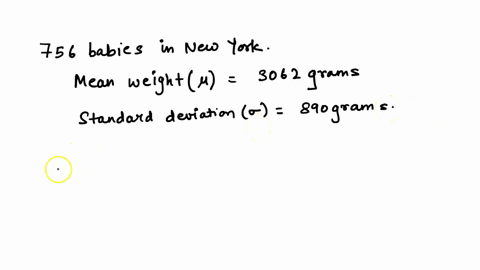 756 babies in New York.
Mean weight (μ) = 3062 grams
Standard deviation (σ) = 890 grams.